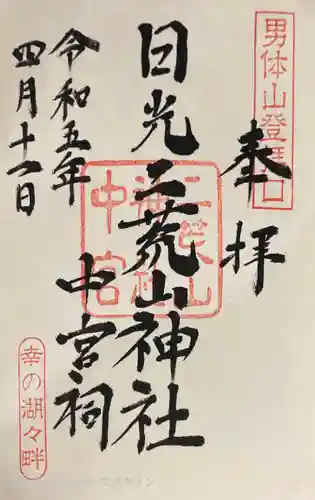 男体山登拝口
奉拝
日光二荒山神社
中宮祠
令和五年
四月十一日
幸の湖々畔